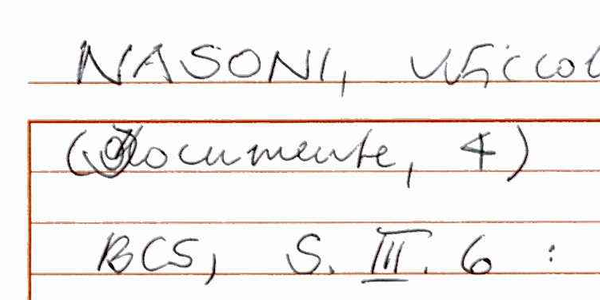 NASONI, Niccol
(Documente, 4)
BCS, S. III. 6 :